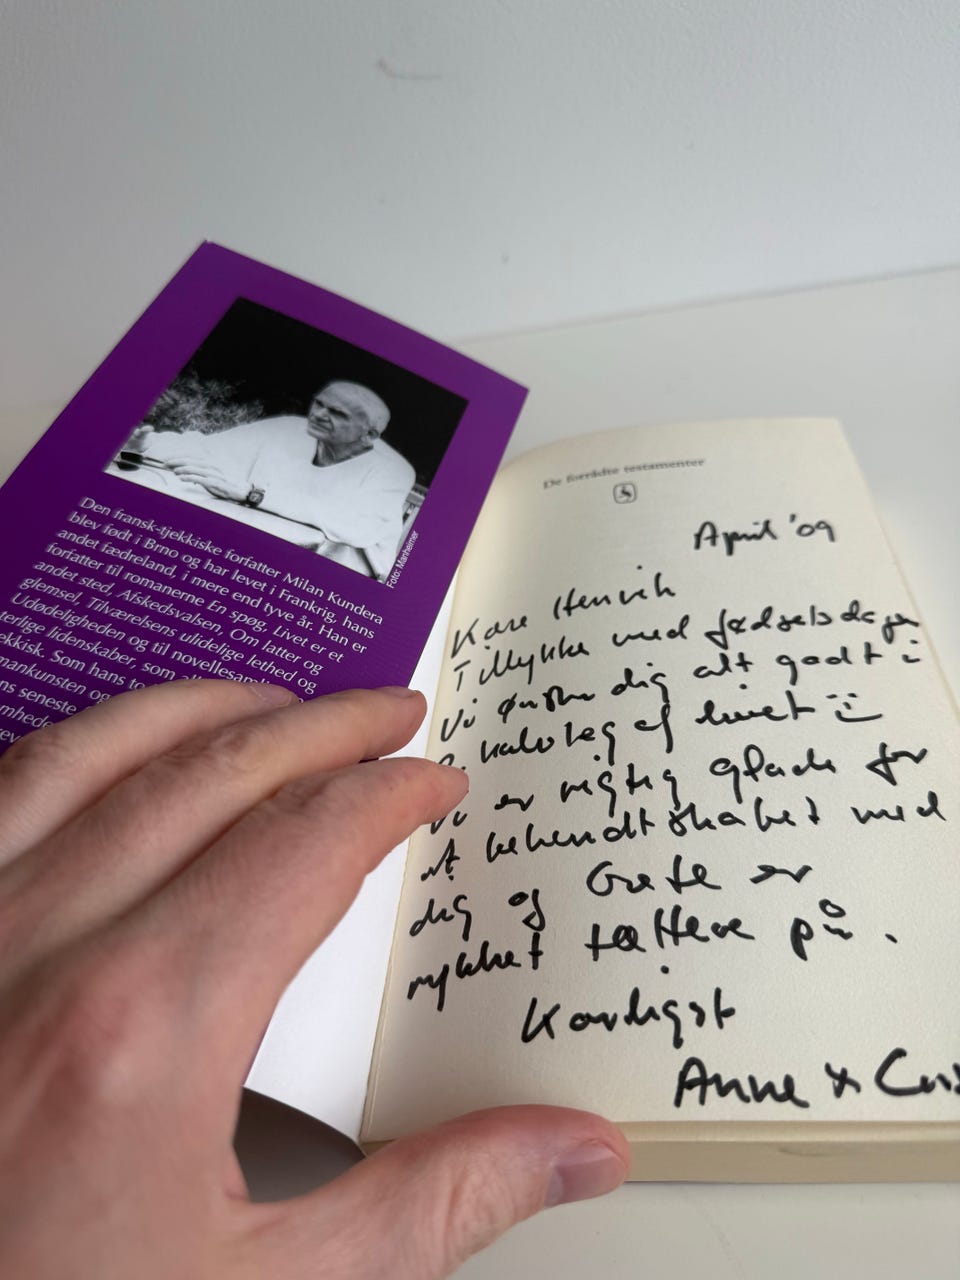 Den fransk-tjekkiske forfatter Milan Kundera
blev født i Brno og har levet i Frankrig, hans
andet fædreland, i mere end tyve år. Han er
forfatter til romanerne En spøg, Livet er et
andet sted, Afskedsvalsen, Om latter og
glemsel, Tilværelsens ulidelige lethed og
Udødeligheden og til novellesam
terlige lidenskaber, som
ekkisk. Som hans
mankunsten og
ns seneste
Foto: Manheimer
De forrådte testamenter
April '09
Kære Henrik
Tillykke med fødselsdagen
Vi ønske dig alt godt i
2. halvleg af livet :)
Vi er rigtig glade for
at bekendtskabet med
dig og Grete er
rykket tættere på.
Kærligst
Anne &